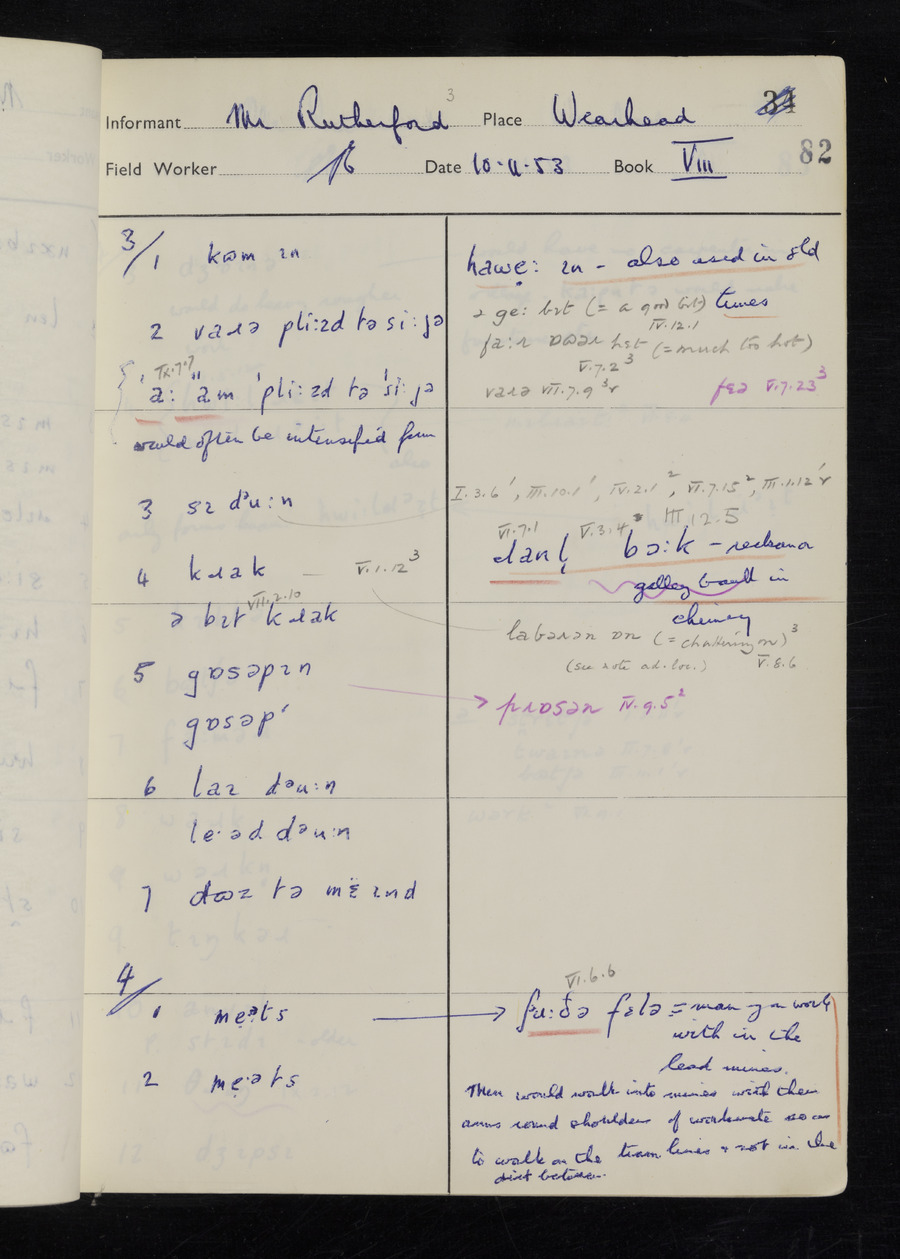 Informant Mr Rutherford 3 Place Wearhead 34
82
Field Worker Date 10·11·53 Book VIII
3/1 kʊm ɪn
2 vaɹə pliːzd tə siː jə
IX.7.7
ˈaː ˈˈam ˈpliːzd tə ˈsiː jə
would often be intensified form
3 sɪ dᵊuːn
4 kɹak — V.1.12³
VII.2.10
ə bɪt kɹak
5 gɒsəpɪn
gɒsəpˈ
6 laɪ dᵊuːn
leˑəd dəuːn
7 dʊz tə mɛ̈ɪnd
4/1 mẹːəts
2 mẹːəts
hawẹː ɪn – also used in old
times
ə geː bɪt (= a good bit)
IV.12.1
faːɹ ɒʊəɹ hɛt (= much too hot)
V.7.2³
vaɹə VII.7.9³r fɛə V.7.23³
I.3.6ˈ, III.10.1ˈ, IV.2.1², VI.7.15², III.1.12ˈr
VI.7.1 V.3.4 III.12.5
bɔːk –
in
chimney
labəɹən ɒn (= chattering on)³
(see note ad. loc.) V.8.6
pɹɒsən IV.9.5²
VI.6.6
fɛlə = man you work
with in the
lead mines.
Men would walk into mines with their
arms round shoulders of workmate so as
to walk on the tram lines & not in the
dirt between.